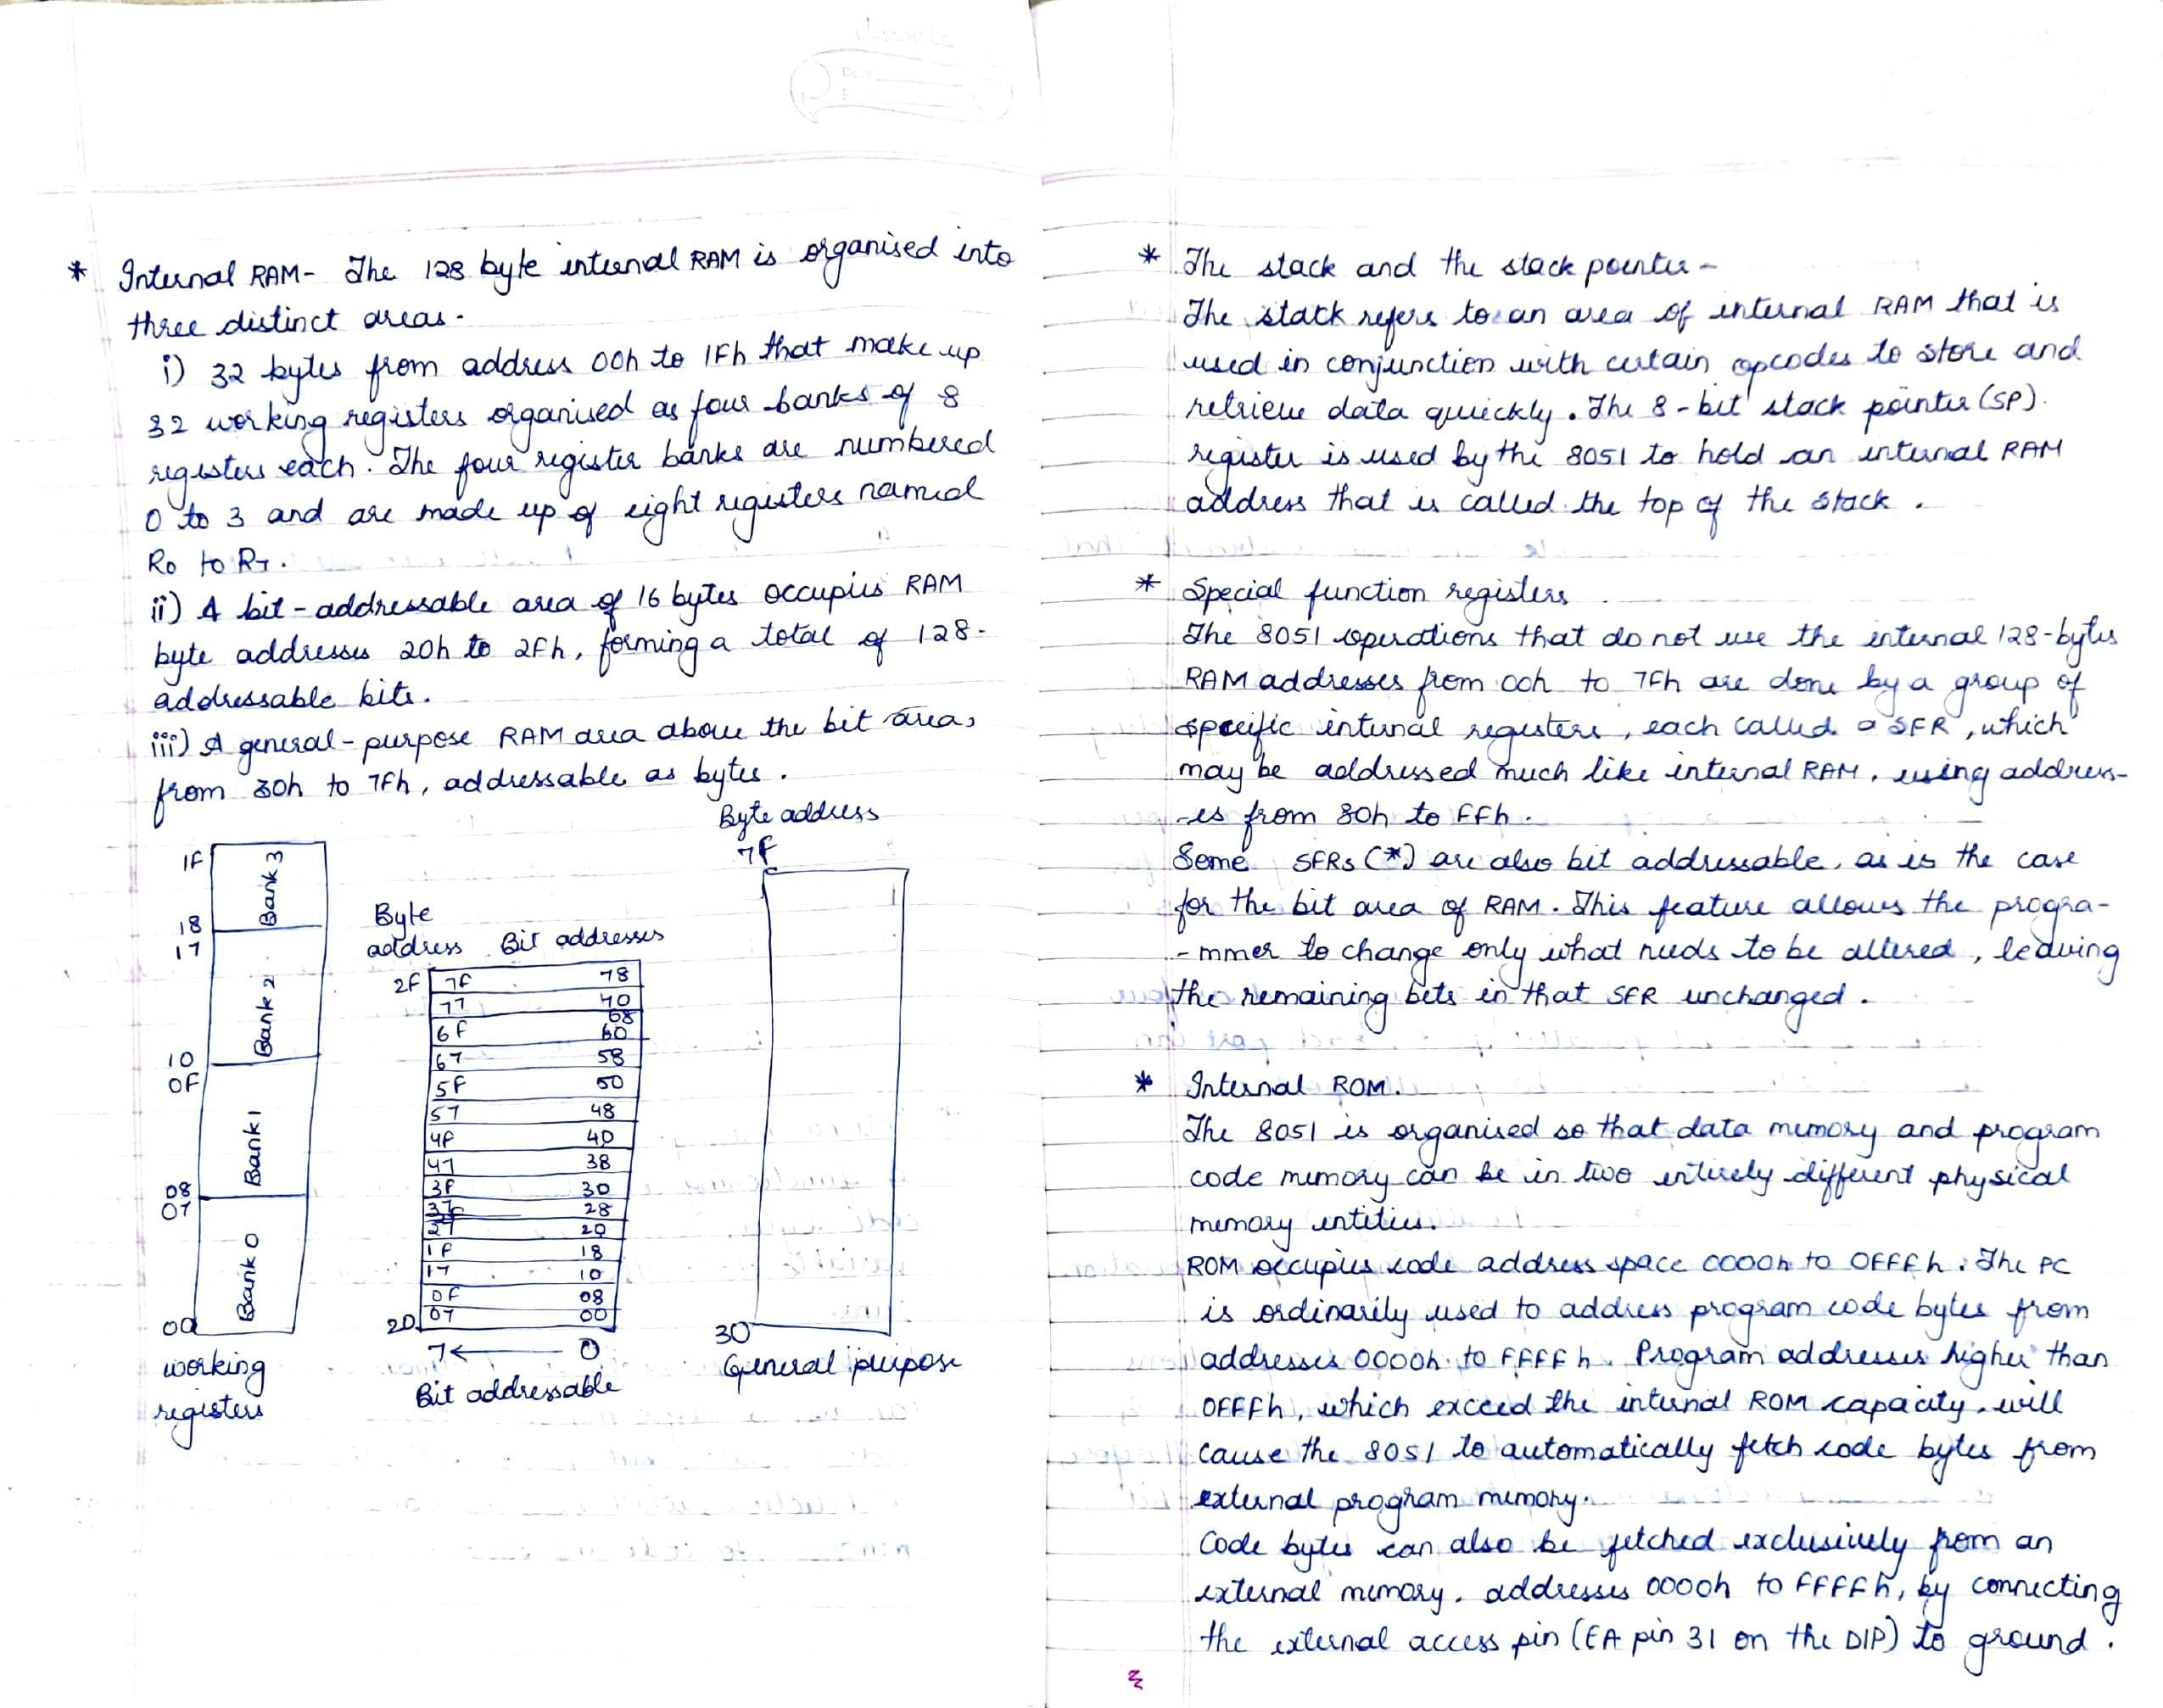 * Internal RAM- The 128 byte internal RAM is organised into
three distinct areas.
i) 32 bytes from address 00h to 1Fh that make up
32 working registers organised as four banks of 8
registers each. The four register banks are numbered
0 to 3 and are made up of eight registers named
R0 to R7.
ii) A bit-addressable area of 16 bytes occupies RAM
byte addresses 20h to 2Fh, forming a total of 128-
addressable bits.
iii) A general-purpose RAM area above the bit area,
from 30h to 7Fh, addressable as bytes.
1F
Bank 3
18
17
Bank 2
10
0F
Bank 1
08
07
Bank 0
00
working
registers
Byte
address Bit addresses
2F 7F 78
77 70
6F 68
60
67 58
5F 50
57 48
4F 40
47 38
3F 30
37 28
27 20
1F 18
17 10
0F 08
20 07 00
7 ← 0
Bit addressable
Byte address
7F
30
General purpose
* The stack and the stack pointer-
The stack refers to an area of internal RAM that is
used in conjunction with certain opcodes to store and
retrieve data quickly. The 8-bit stack pointer (SP).
register is used by the 8051 to hold an internal RAM
address that is called the top of the stack.
* Special function registers
The 8051 operations that do not use the internal 128-bytes
RAM addresses from 00h to 7Fh are done by a group of
specific internal registers, each called a SFR, which
may be addressed much like internal RAM, using address-
-es from 80h to FFh.
Some SFRs (*) are also bit addressable, as is the case
for the bit area of RAM. This feature allows the progra-
-mmer to change only what needs to be altered, leaving
the remaining bits in that SFR unchanged.
* Internal ROM.
The 8051 is organised so that data memory and program
code memory can be in two entirely different physical
memory entities.
ROM occupies code address space 0000h to 0FFFh. The PC
is ordinarily used to address program code bytes from
addresses 0000h to FFFFh. Program addresses higher than
0FFFh, which exceed the internal ROM capacity, will
cause the 8051 to automatically fetch code bytes from
external program memory.
Code bytes can also be fetched exclusively from an
external memory, addresses 0000h to FFFFh, by connecting
the external access pin (EA pin 31 on the DIP) to ground.